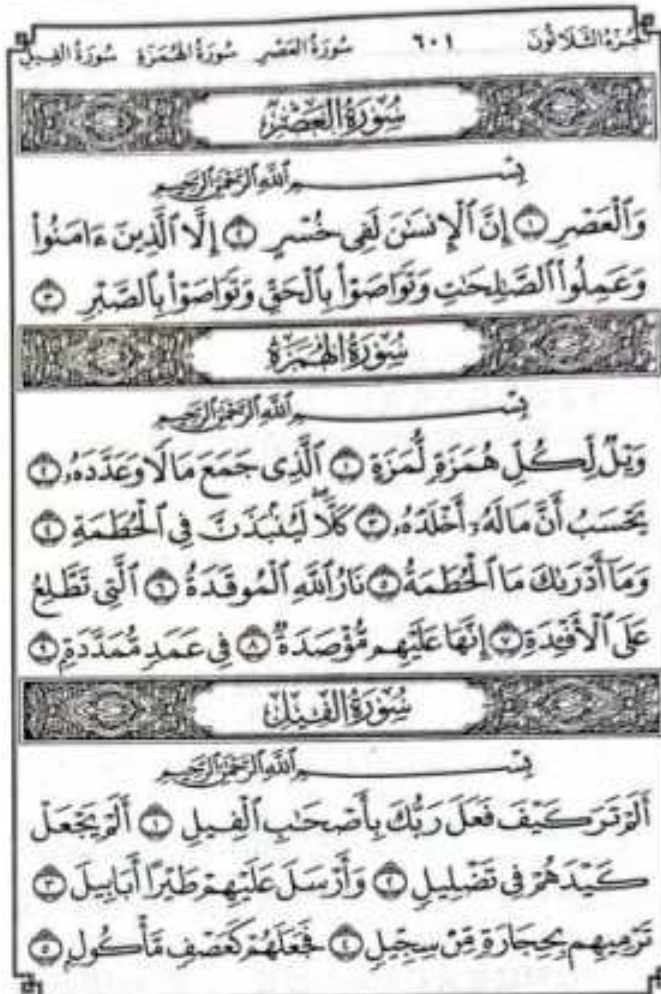 الجزء الثلاثون ٦٠١ سورة العصر سورة الهمزة سورة الفيل
سُورَةُ العَصْرِ
بِسْمِ ٱللَّهِ ٱلرَّحْمَٰنِ ٱلرَّحِيمِ
وَٱلْعَصْرِ ١ إِنَّ ٱلْإِنسَٰنَ لَفِى خُسْرٍ ٢ إِلَّا ٱلَّذِينَ ءَامَنُوا۟
وَعَمِلُوا۟ ٱلصَّٰلِحَٰتِ وَتَوَاصَوْا۟ بِٱلْحَقِّ وَتَوَاصَوْا۟ بِٱلصَّبْرِ ٣
سُورَةُ الهُمَزَةِ
بِسْمِ ٱللَّهِ ٱلرَّحْمَٰنِ ٱلرَّحِيمِ
وَيْلٌ لِّكُلِّ هُمَزَةٍ لُّمَزَةٍ ١ ٱلَّذِى جَمَعَ مَالًا وَعَدَّدَهُۥ ٢
يَحْسَبُ أَنَّ مَالَهُۥٓ أَخْلَدَهُۥ ٣ كَلَّا ۖ لَيُنۢبَذَنَّ فِى ٱلْحُطَمَةِ ٤
وَمَآ أَدْرَىٰكَ مَا ٱلْحُطَمَةُ ٥ نَارُ ٱللَّهِ ٱلْمُوقَدَةُ ٦ ٱلَّتِى تَطَّلِعُ
عَلَى ٱلْأَفْـِٔدَةِ ٧ إِنَّهَا عَلَيْهِم مُّؤْصَدَةٌ ٨ فِى عَمَدٍ مُّمَدَّدَةٍۭ ٩
سُورَةُ الفِيلِ
بِسْمِ ٱللَّهِ ٱلرَّحْمَٰنِ ٱلرَّحِيمِ
أَلَمْ تَرَ كَيْفَ فَعَلَ رَبُّكَ بِأَصْحَٰبِ ٱلْفِيلِ ١ أَلَمْ يَجْعَلْ
كَيْدَهُمْ فِى تَضْلِيلٍ ٢ وَأَرْسَلَ عَلَيْهِمْ طَيْرًا أَبَابِيلَ ٣
تَرْمِيهِم بِحِجَارَةٍ مِّن سِجِّيلٍ ٤ فَجَعَلَهُمْ كَعَصْفٍ مَّأْكُولٍۭ ٥